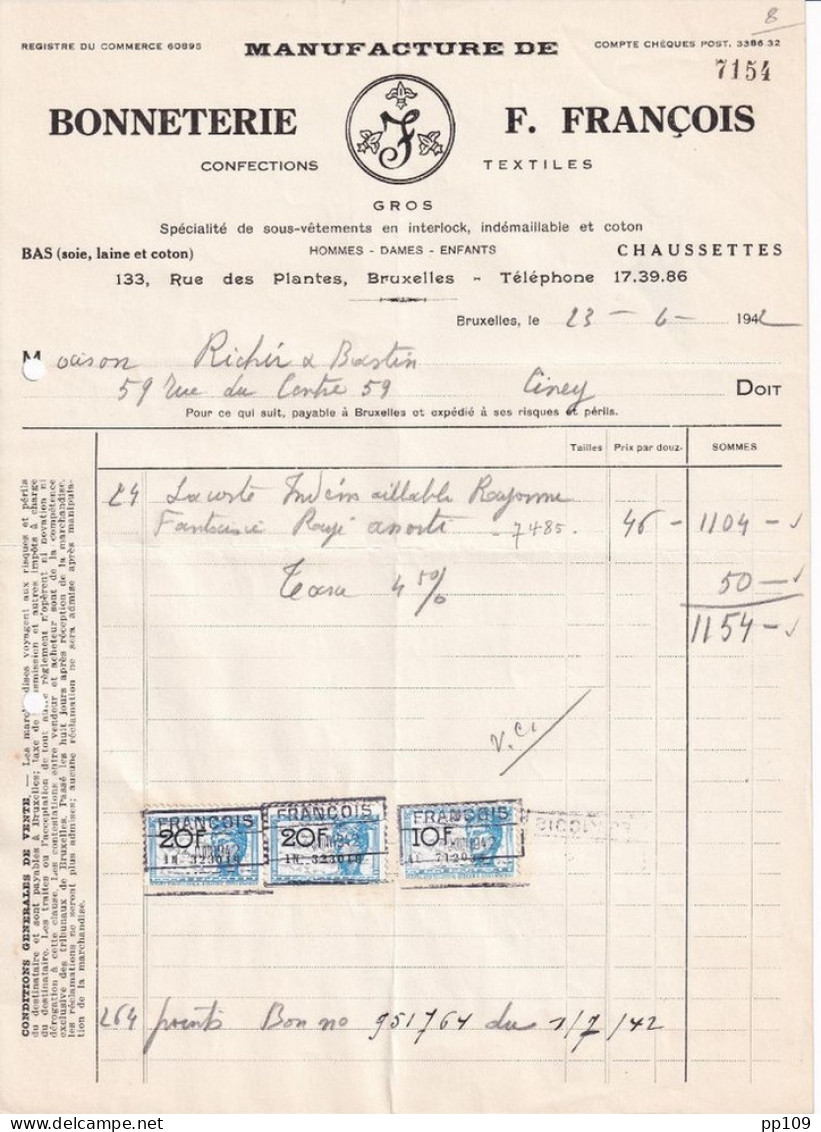 8
REGISTRE DU COMMERCE 60895
MANUFACTURE DE
COMPTE CHÈQUES POST. 3386.32
7154
BONNETERIE
F. FRANÇOIS
CONFECTIONS
TEXTILES
GROS
Spécialité de sous-vêtements en interlock, indémaillable et coton
BAS (soie, laine et coton)
HOMMES - DAMES - ENFANTS
CHAUSSETTES
133, Rue des Plantes, Bruxelles - Téléphone 17.39.86
Bruxelles, le 23 - 6 - 1942
Maison Richir & Bastin
59 rue du Centre 59 Ciney DOIT
Pour ce qui suit, payable à Bruxelles et expédié à ses risques et périls.
Tailles Prix par douz. SOMMES
24 Indémaillable Rayonne
Fantaisie Rayé assorti - 7485. 46 - 1104 -
Taxe 4 50%
50 -
1154 -
V.
FRANÇOIS FRANÇOIS FRANÇOIS
20F 20F 10F
264 points Bon no 951764 du 1/7/42
CONDITIONS GENERALES DE VENTE. — Les marchandises voyagent aux risques et périls
du destinataire et sont payables à Bruxelles; taxe de transmission et autres impôts à charge
du destinataire. Les traites ou l'acceptation de tout autre règlement n'opèrent ni novation ni
dérogation à cette clause. Les contestations entre vendeur et acheteur sont de la compétence
exclusive des tribunaux de Bruxelles. Passé les huit jours après réception de la marchandise,
les réclamations ne seront plus admises; aucune réclamation ne sera admise après manipula-
tion de la marchandise.
pp109